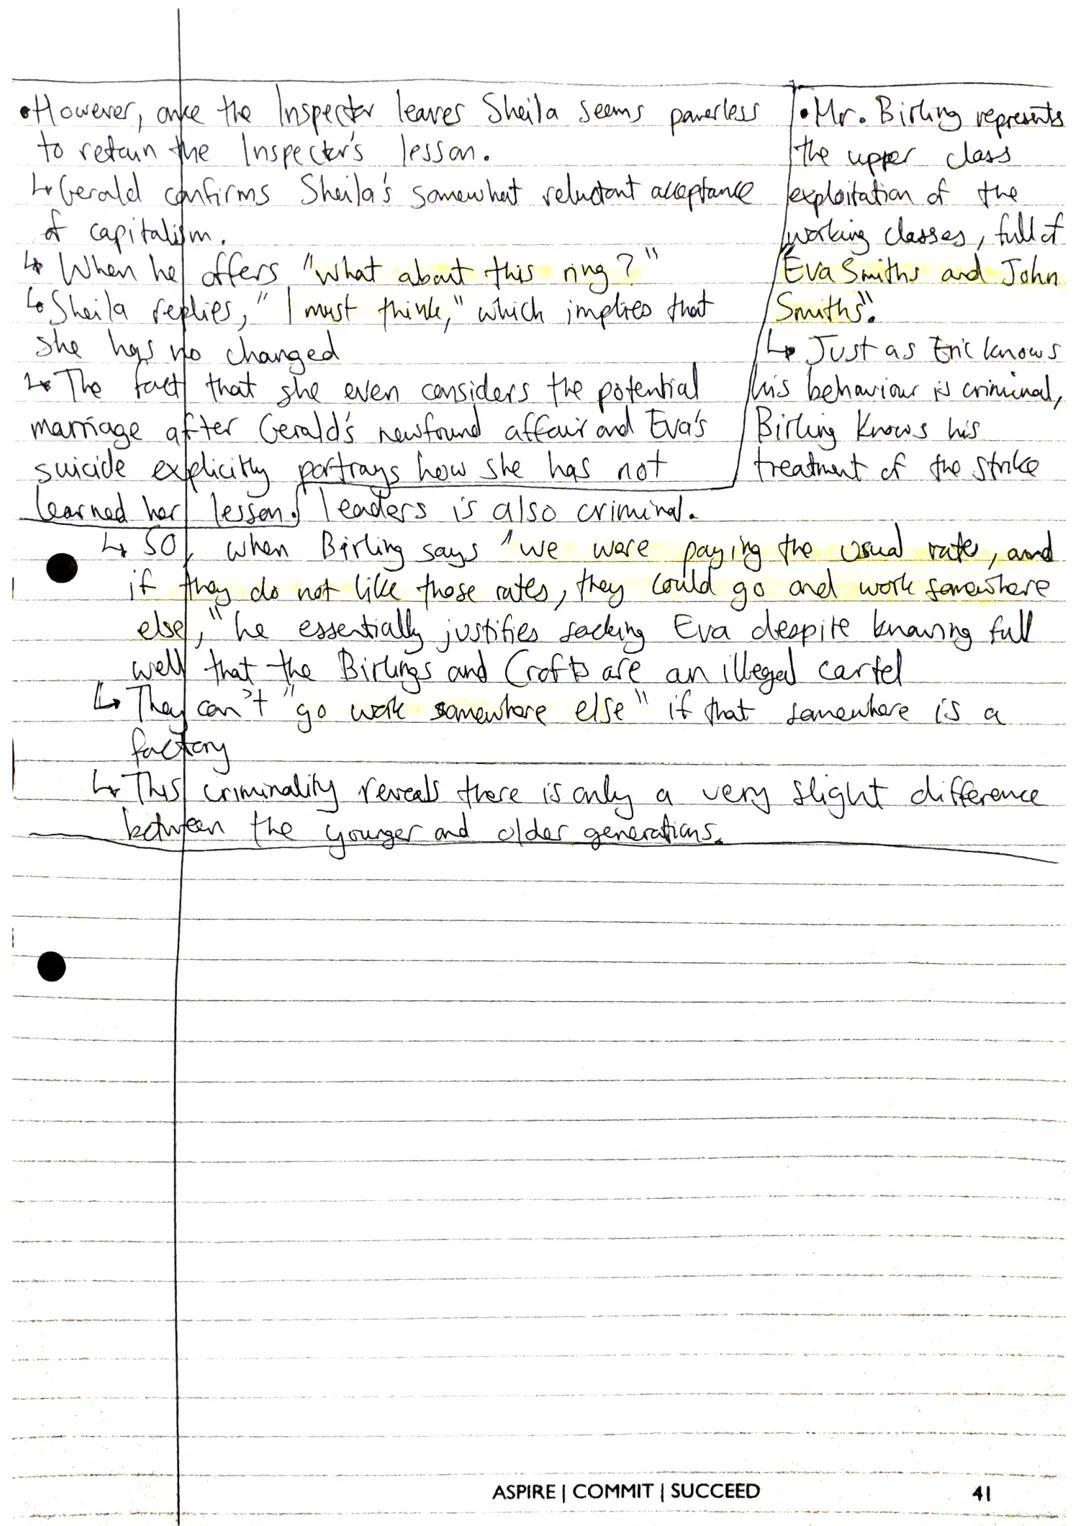 •However, once the Inspector leaves Sheila seems powerless
to retain the Inspector's lesson.
↳Gerald confirms Sheila's somewhat reluctant acceptance
of capitalism.
↳ When he offers "what about this ring?"
↳Sheila replies, "I must think," which implies that
she has no changed
↳ The fact that she even considers the potential
marriage after Gerald's newfound affair and Eva's
suicide explicitly portrays how she has not
learned her lesson.
•Mr. Birling represents
the upper class
exploitation of the
working classes, full of
"Eva Smiths and John
Smiths".
↳ Just as Eric knows
his behaviour is criminal,
Birling knows his
treatment of the strike
leaders is also criminal.
↳ So, when Birling says "we were paying the usual rates, and
if they do not like those rates, they could go and work somewhere
else," he essentially justifies sacking Eva despite knowing full
well that the Birlings and Crofts are an illegal cartel
↳ They can't "go work somewhere else" if that somewhere is a
factory
↳ This criminality reveals there is only a very slight difference
between the younger and older generations.
ASPIRE | COMMIT | SUCCEED
41